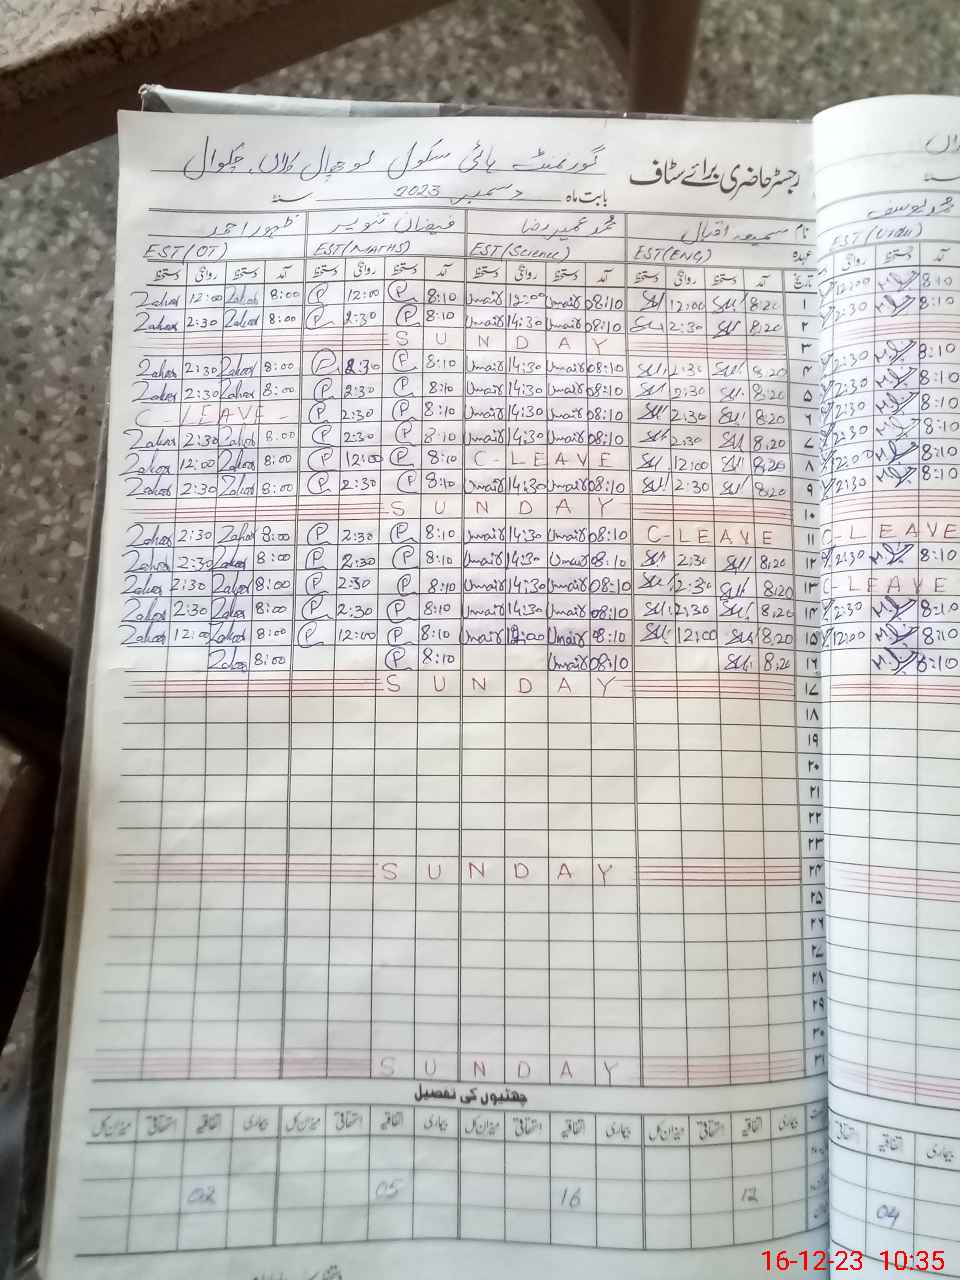 گورنمنٹ ہائی سکول لوچھال کلاں، چکوال
رجسٹر حاضری برائے سٹاف
بابت ماہ دسمبر 2023 سنہ
نام سمیعہ اقبال محمد عمیر رضا فیضان تنویر ظہور احمد
عہدہ EST(ENG) EST(Science) EST(MATHS) EST(OT)
تاریخ آمد دستخط روانگی دستخط آمد دستخط روانگی دستخط آمد دستخط روانگی دستخط آمد دستخط روانگی دستخط
Zahoor 12:00 Zahoor 8:00 P 12:00 P 8:10 Umair 12:00 Umair 08:10 SU 12:00 SU 8:20 ۱
Zahoor 2:30 Zahoor 8:00 P 2:30 P 8:10 Umair 14:30 Umair 08:10 SU 2:30 SU 8:20 ۲
SUNDAY ۳
Zahoor 2:30 Zahoor 8:00 P 2:30 P 8:10 Umair 14:30 Umair 08:10 SU 2:30 SU 8:20 ۴
Zahoor 2:30 Zahoor 8:00 P 2:30 P 8:10 Umair 14:30 Umair 08:10 SU 2:30 SU 8:20 ۵
C-LEAVE- P 2:30 P 8:10 Umair 14:30 Umair 08:10 SU 2:30 SU 8:20 ۶
Zahoor 2:30 Zahoor 8:00 P 2:30 P 8:10 Umair 14:30 Umair 08:10 SU 2:30 SU 8:20 ۷
Zahoor 12:00 Zahoor 8:00 P 12:00 P 8:10 C-LEAVE SU 12:00 SU 8:20 ۸
Zahoor 2:30 Zahoor 8:00 P 2:30 P 8:10 Umair 14:30 Umair 08:10 SU 2:30 SU 8:20 ۹
SUNDAY ۱۰
Zahoor 2:30 Zahoor 8:00 P 2:30 P 8:10 Umair 14:30 Umair 08:10 C-LEAVE ۱۱
Zahoor 2:30 Zahoor 8:00 P 2:30 P 8:10 Umair 14:30 Umair 08:10 SU 2:30 SU 8:20 ۱۲
Zahoor 2:30 Zahoor 8:00 P 2:30 P 8:10 Umair 14:30 Umair 08:10 SU 2:30 SU 8:20 ۱۳
Zahoor 2:30 Zahoor 8:00 P 2:30 P 8:10 Umair 14:30 Umair 08:10 SU 2:30 SU 8:20 ۱۴
Zahoor 12:00 Zahoor 8:00 P 12:00 P 8:10 Umair 12:00 Umair 08:10 SU 12:00 SU 8:20 ۱۵
Zahoor 8:00 P 8:10 Umair 08:10 SU 8:20 ۱۶
SUNDAY ۱۷
۱۸
۱۹
۲۰
۲۱
۲۲
۲۳
SUNDAY ۲۴
۲۵
۲۶
۲۷
۲۸
۲۹
۳۰
SUNDAY ۳۱
چھٹیوں کی تفصیل
بیماری اتفاقیہ استحقاقی میزان کل بیماری اتفاقیہ استحقاقی میزان کل بیماری اتفاقیہ استحقاقی میزان کل بیماری اتفاقیہ استحقاقی میزان کل
02 05 16 12
محمد یوسف
EST(Urdu)
آمد دستخط روانگی
12:00 8:10
2:30 8:10
2:30 8:10
2:30 8:10
2:30 8:10
2:30 8:10
12:00 8:10
2:30 8:10
C-LEAVE
2:30 8:10
C-LEAVE
2:30 8:10
12:00 8:10
8:10
بیماری اتفاقیہ استحقاقی
04
16-12-23 10:35